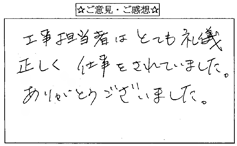 ☆ご意見・ご感想☆
工事担当者はとても礼儀
正しく仕事をされていました。
ありがとうございました。